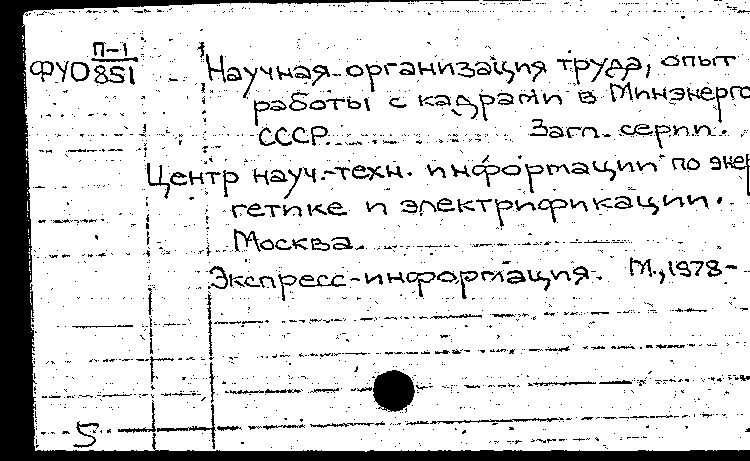 П-1
ФУО 851
Научная организация труда, опыт
работы с кадрами в Минэнерго
СССР. Загл. серии.
Центр науч.-техн. информации по энер
гетике и электрификации.
Москва.
Экспресс-информация. М., 1978-
5